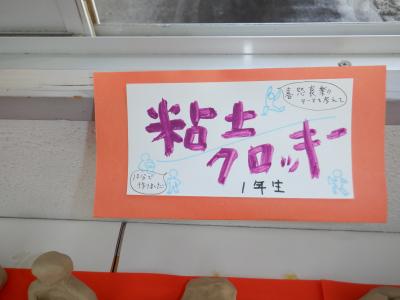 粘土
クロッキー
1年生
喜怒哀楽の
テーマを考えて
10分で
作りました